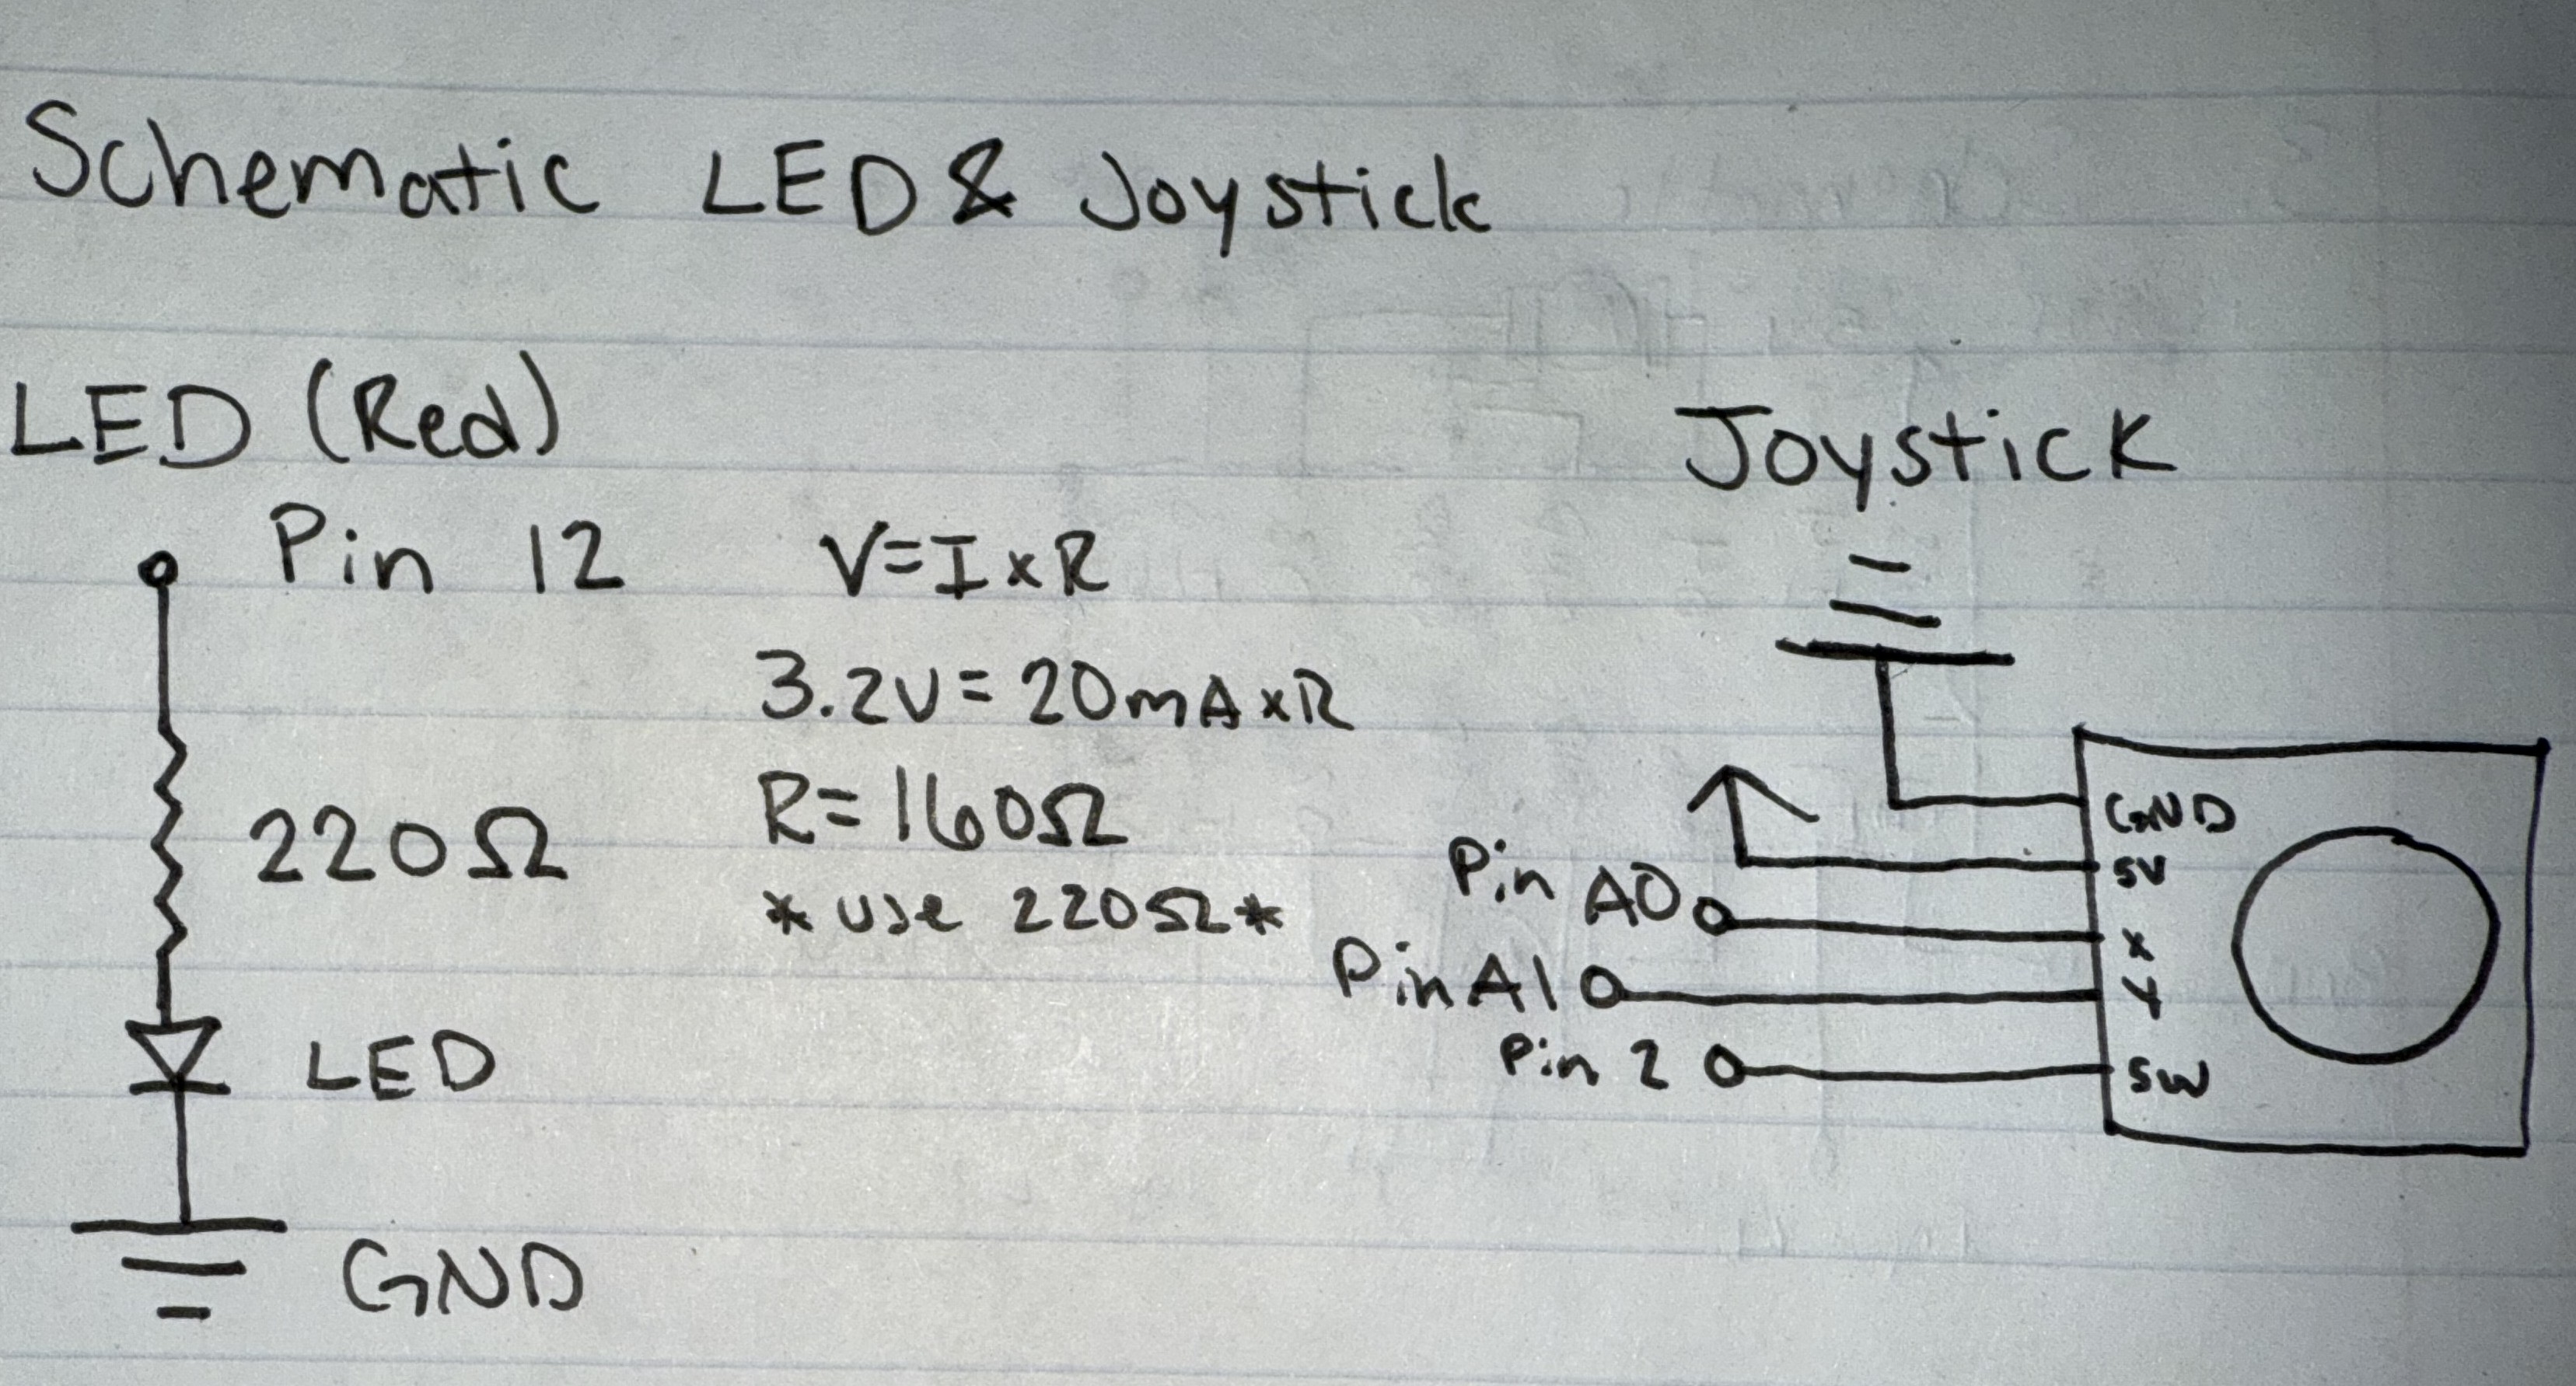 Schematic LED & Joystick
LED (Red)
Pin 12
220Ω
LED
GND
V=I×R
3.2V=20mA×R
R=160Ω
*use 220Ω*
Joystick
GND
5V
Pin A0
X
Pin A1
Y
Pin 2
SW